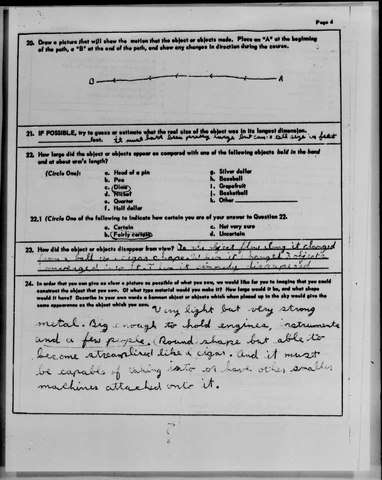 Page 4
20. Draw a picture that will show the motion that the object or objects made. Place an "A" at the beginning
of the path, a "B" at the end of the path, and show any changes in direction during the course.
B A
21. IF POSSIBLE, try to guess or estimate what the real size of the object was in its longest dimension.
feet. It must have been pretty large but can't tell size in feet
22. How large did the object or objects appear as compared with one of the following objects held in the hand
and at about arm's length?
(Circle One): a. Head of a pin g. Silver dollar
b. Pea h. Baseball
c. Dime i. Grapefruit
d. Nickel j. Basketball
e. Quarter k. Other
f. Half dollar
22.1 (Circle One of the following to indicate how certain you are of your answer to Question 22.
a. Certain c. Not very sure
b. Fairly certain d. Uncertain
23. How did the object or objects disappear from view? As the object flew along it changed
from a ball to a cigar shape. When it changed 2 objects
converged into it. Then it simply disappeared
24. In order that you can give as clear a picture as possible of what you saw, we would like for you to imagine that you could
construct the object that you saw. Of what type material would you make it? How large would it be, and what shape
would it have? Describe in your own words a common object or objects which when placed up in the sky would give the
same appearance as the object which you saw. Very light but very strong
metal. Big enough to hold engines, instruments
and a few people. (Round shape but able to
become streamlined like a cigar. And it must
be capable of taking into or have other smaller
machines attached onto it.